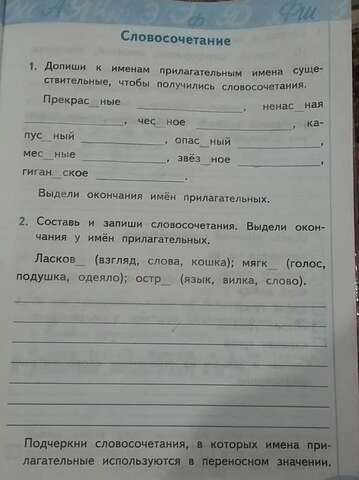 А Ф Фш
Словосочетание
1. Допиши к именам прилагательным имена суще-
ствительные, чтобы получились словосочетания.
Прекрас__ные ____________, ненас__ная
____________, чес__ное ____________, ка-
пус__ный ____________, опас__ный ____________,
мес__ные ____________, звёз__ное ____________,
гиган__ское ____________.
Выдели окончания имён прилагательных.
2. Составь и запиши словосочетания. Выдели окон-
чания у имён прилагательных.
Ласков__ (взгляд, слова, кошка); мягк__ (голос,
подушка, одеяло); остр__ (язык, вилка, слово).
Подчеркни словосочетания, в которых имена при-
лагательные используются в переносном значении.